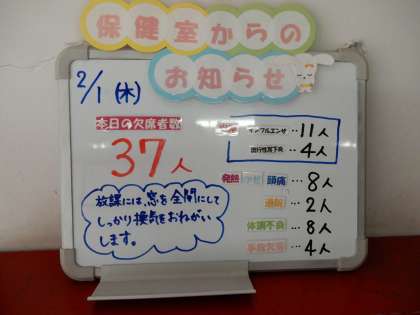 保健室からの
お知らせ
2/1 (木)
本日の欠席者数
37人
インフルエンザ …11人
流行性耳下炎 …4人
発熱 頭痛 …8人
通院 …2人
体調不良 …8人
事故欠席 …4人
放課には、窓を全開にして
しっかり換気をおねがい
します。